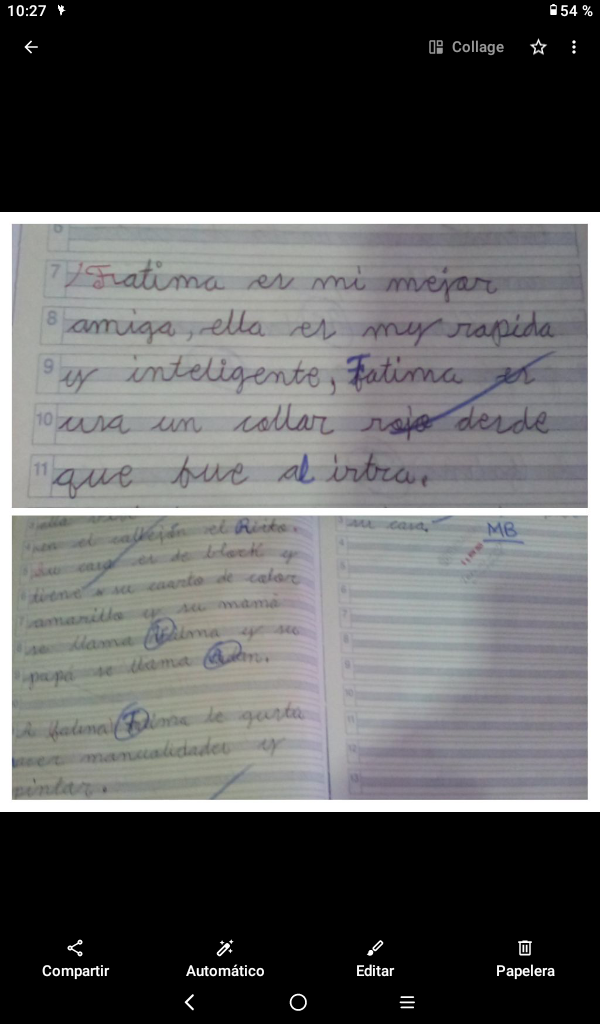 10:27
54 %
Collage
7 Fratima es mi mejor
8 amiga, ella es my rapida
9 y inteligente, Fatima es
10 usa un collar rojo desde
11 que fue al irtra.
en el callejón el Riito.
Su casa es de block y
tiene su cuarto de color
amarillo y su mamá
se llama y su
papá se llama.
A Fatima le gusta
manualidades y
pintar.
3 su casa.
MB
4
5
6
7
8
9
10
11
12
13
Compartir
Automático
Editar
Papelera